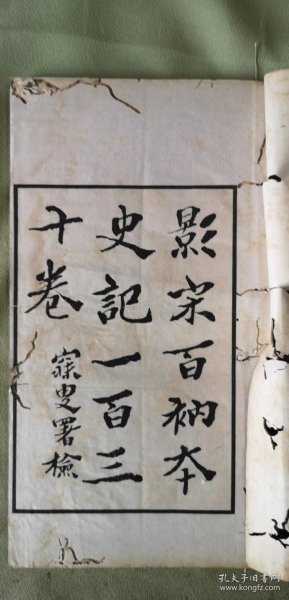 影宋百衲本
史記一百三
十卷
寐叟署檢
孔夫子旧书网
www.kongfz.com